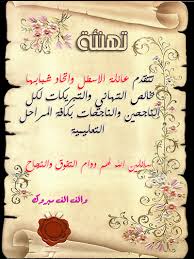 تهنئة
تتقدم عائلة الاسطل واتحاد شبابها
بخالص التهاني والتبريكات لكل
الناجحين والناجحات بكافة المراحل
التعليمية
سائلين الله لهم دوام التفوق والنجاح
والف الف مبروك